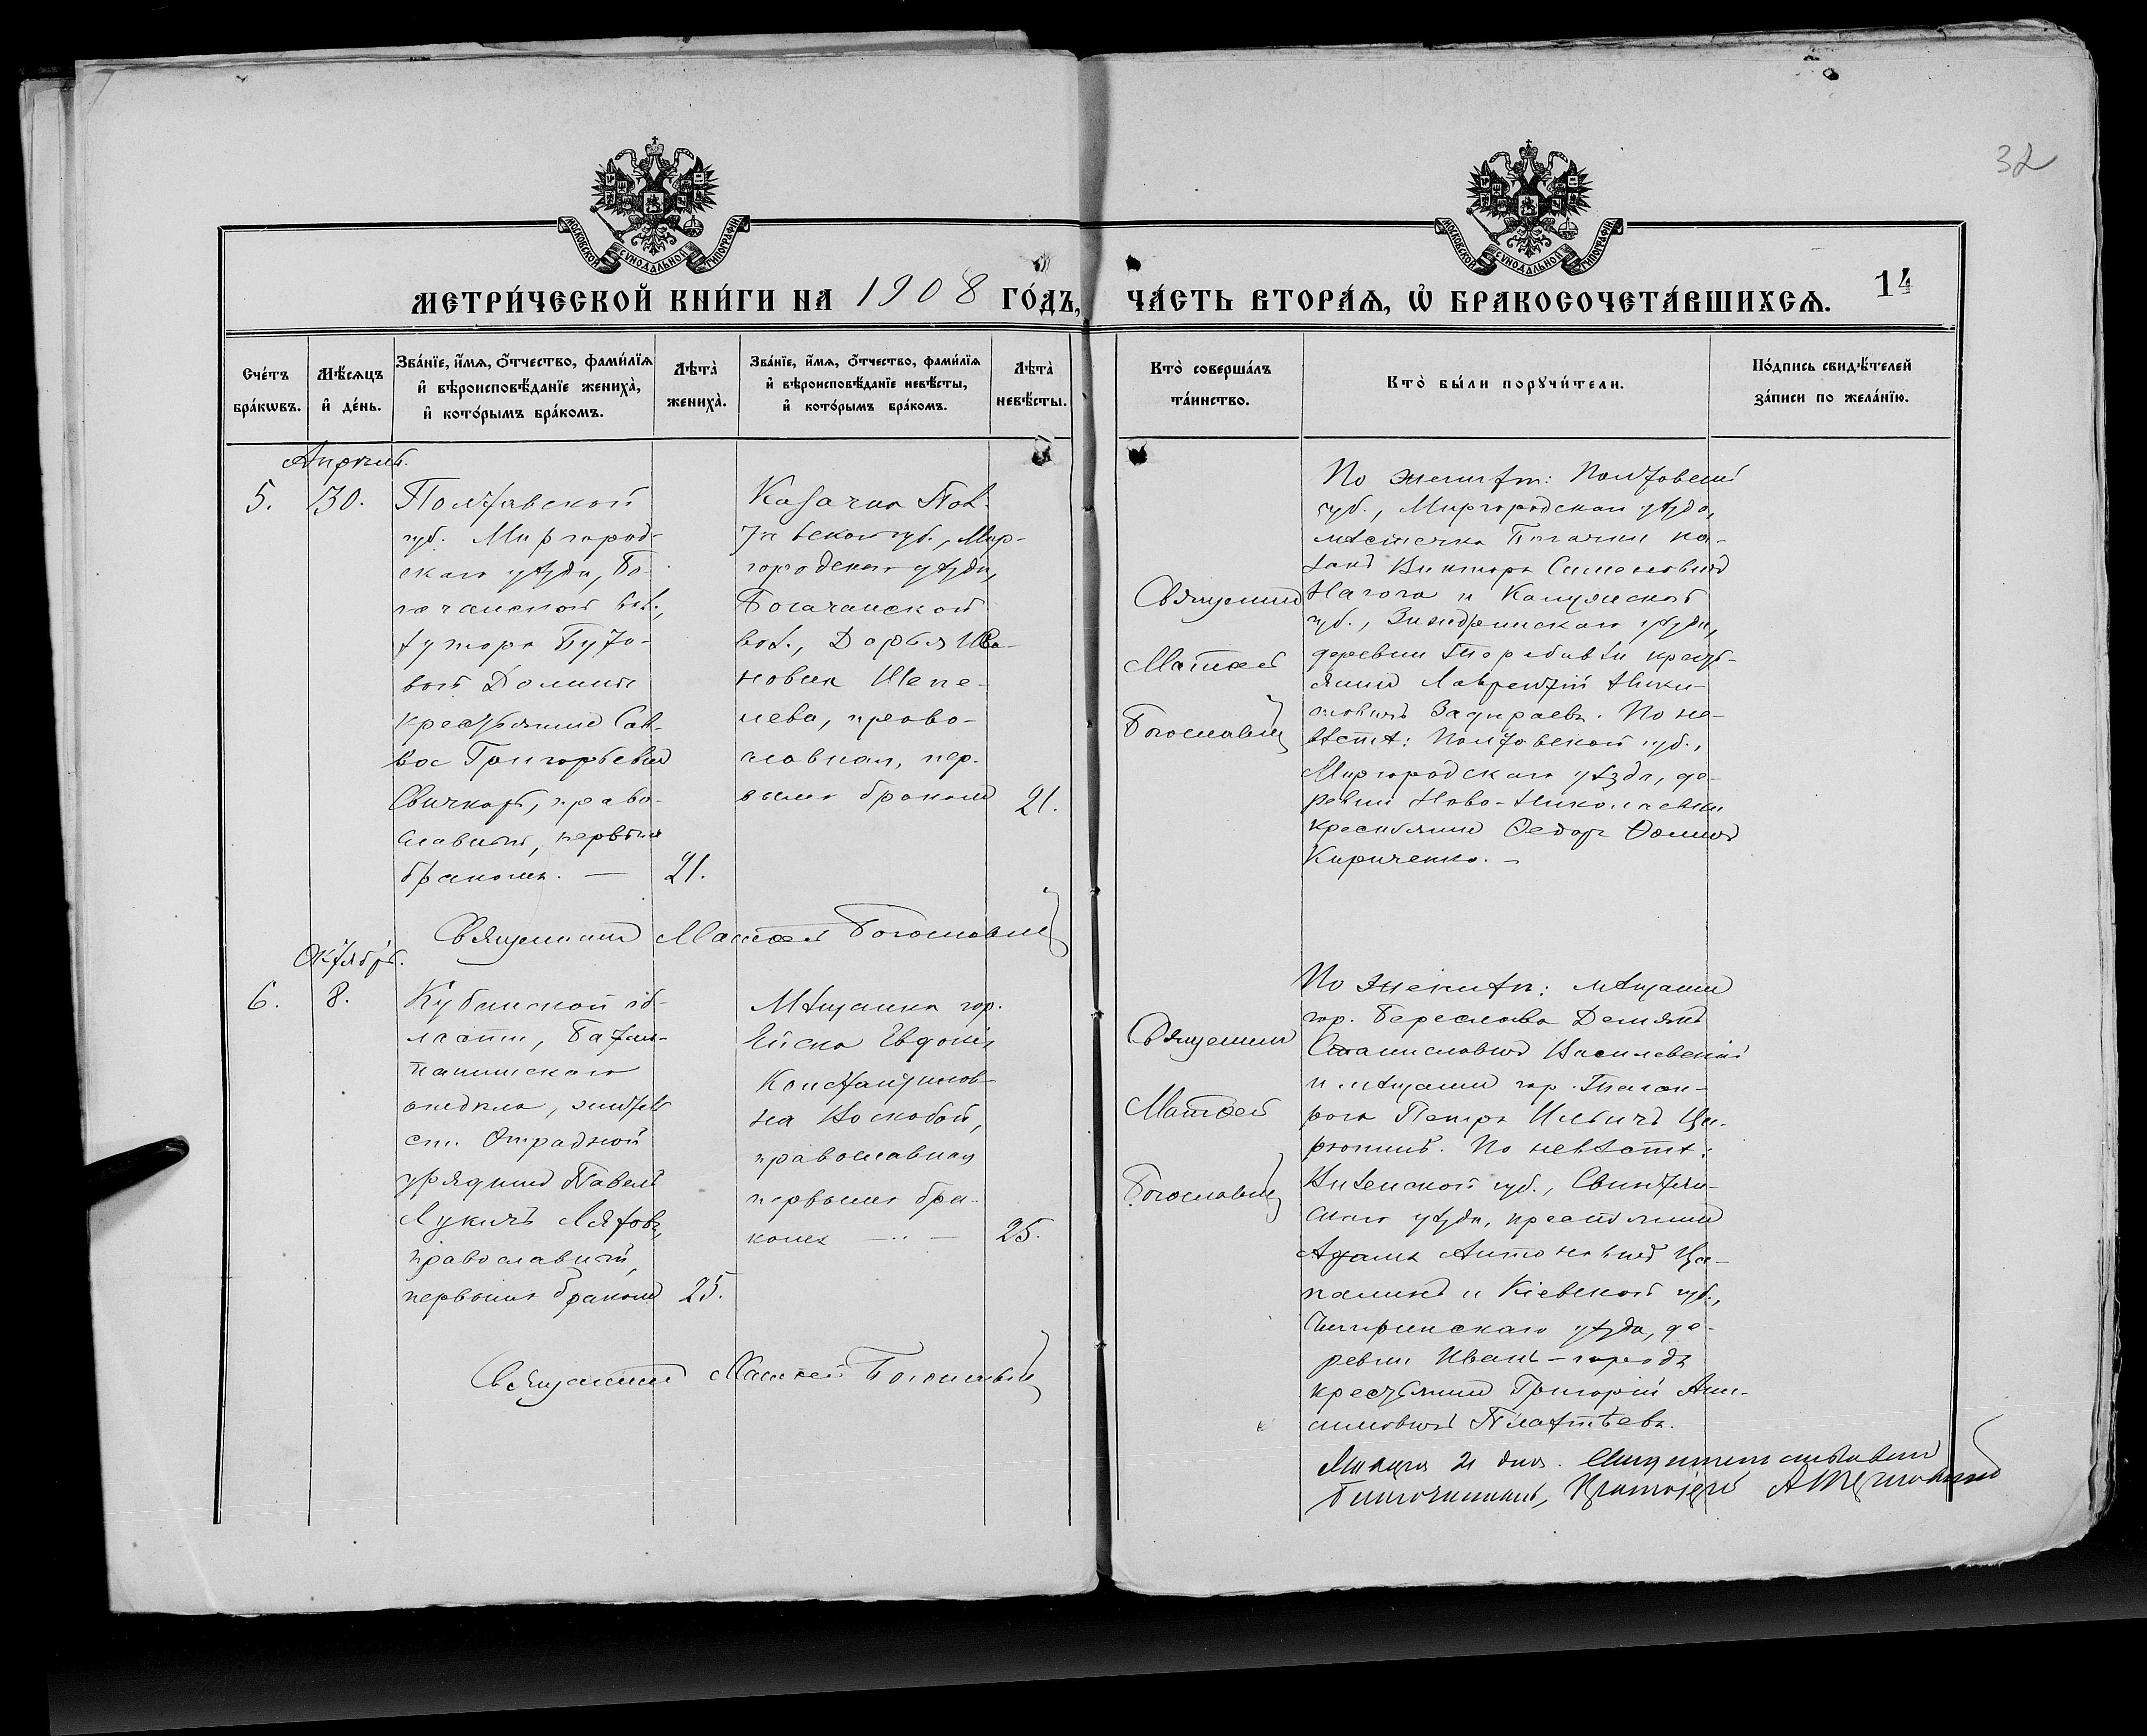 32
МОСКОВСКОЙ СУНОДАЛЬНОЙ ТИПОГРАФІИ
МОСКОВСКОЙ СУНОДАЛЬНОЙ ТИПОГРАФІИ
МЕТРИ́ЧЕСКОЙ КНИ́ГИ НА 1908 ГО́ДЪ,
ЧА́СТЬ ВТОРА́Ѧ, Ѡ҆ БРАКОСОЧЕТА́ВШИХСѦ.
14
Сче́тъ бра́кѡвъ.
Мѣ́сѧцъ и҆ де́нь.
Зва́нїе, и҆́мѧ, ѻ҆́тчество, фами́лїѧ
и҆ вѣроисповѣ́данїе жениха̀,
и҆ кото́рымъ бра́комъ.
Лѣ́та̀ жениха̀.
Зва́нїе, и҆́мѧ, ѻ҆́тчество, фами́лїѧ
и҆ вѣроисповѣ́данїе невѣ́сты,
и҆ кото́рымъ бра́комъ.
Лѣ́та̀ невѣ́сты.
Кто̀ соверша́лъ
та́инство.
Кто̀ бы́ли порꙋчи́тели.
По́дпись свидѣ́телей
за́писи по жела́нїю.
Апрѣль.
5.
30.
Полтавской
губ. Миргород-
скаго уѣзда, Бо-
гачанской вол.,
хутора Буто-
вой Долины
крестьянинъ Сав-
ва Григорьевичъ
Свичкарь, право-
славный, первымъ
бракомъ. —
21.
Казачка Пол-
тавской губ., Мир-
городскаго уѣзда,
Богачанской
вол., Дарья Ива-
новна Шепе-
лева, право-
славная, пер-
вымъ бракомъ
21.
Священникъ
Матѳей
Богославскій
По женихѣ: Полтавской
губ., Миргородскаго уѣзда,
мѣстечка Богачки ка-
закъ Викторъ Симоновичъ
Нагога и Калужской
губ., Жиздринскаго уѣзда,
деревни кресть-
янинъ Лаврентій Ники-
По не-
вѣстѣ: Полтавской губ.,
Миргородскаго уѣзда, де-
ревни Ново-Николаевки
крестьянинъ Ѳедоръ Ѳоминъ
Кириченко. —
Священникъ Матѳей Богославскій
Октябрь.
6.
8.
Кубанской об-
ласти, Баталпашинскаго
отдѣла, жител
ст. Отрадной
урядникъ Павелъ
Лукичъ Лятовъ,
православный,
первымъ бракомъ
25.
Мѣщанка гор.
Ейска Евдокія
Константинов-
на Носкобой,
православная
первымъ бра-
комъ — .. —
25.
Священникъ
Матѳей
Богославскій
По женихѣ: мѣщанинъ
гор. Береслава Демьянъ
Станиславовичъ Василевскій
и мѣщанинъ гор. Таган-
рога Петръ Ильичъ Ци-
По невѣстѣ:
Виленской губ., Свинтян-
скаго уѣзда, крестьянинъ
Адамъ Антоновичъ
и Кіевской губ.,
Чигиринскаго уѣзда, де-
ревни Иванъ-города
крестьянинъ Григорій Ани-
симовичъ
Священникъ Матѳей Богославскій
21 дня.
Благочинный, Протоіерей